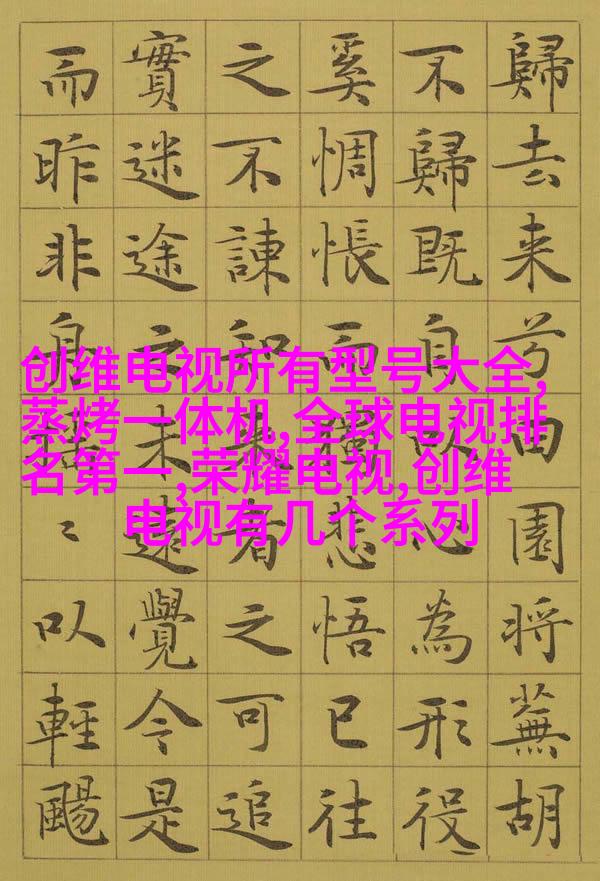 歸去来兮田園将蕪胡
不歸既自以為形役
奚惆悵而獨悲悟已往
之不諫知来者之可追
實迷途之未遠覺今是
而昨非舟揺〻以輕颺
创维电视所有型号大全,
蒸烤一体机,全球电视排
名第一,荣耀电视,创维
电视有几个系列